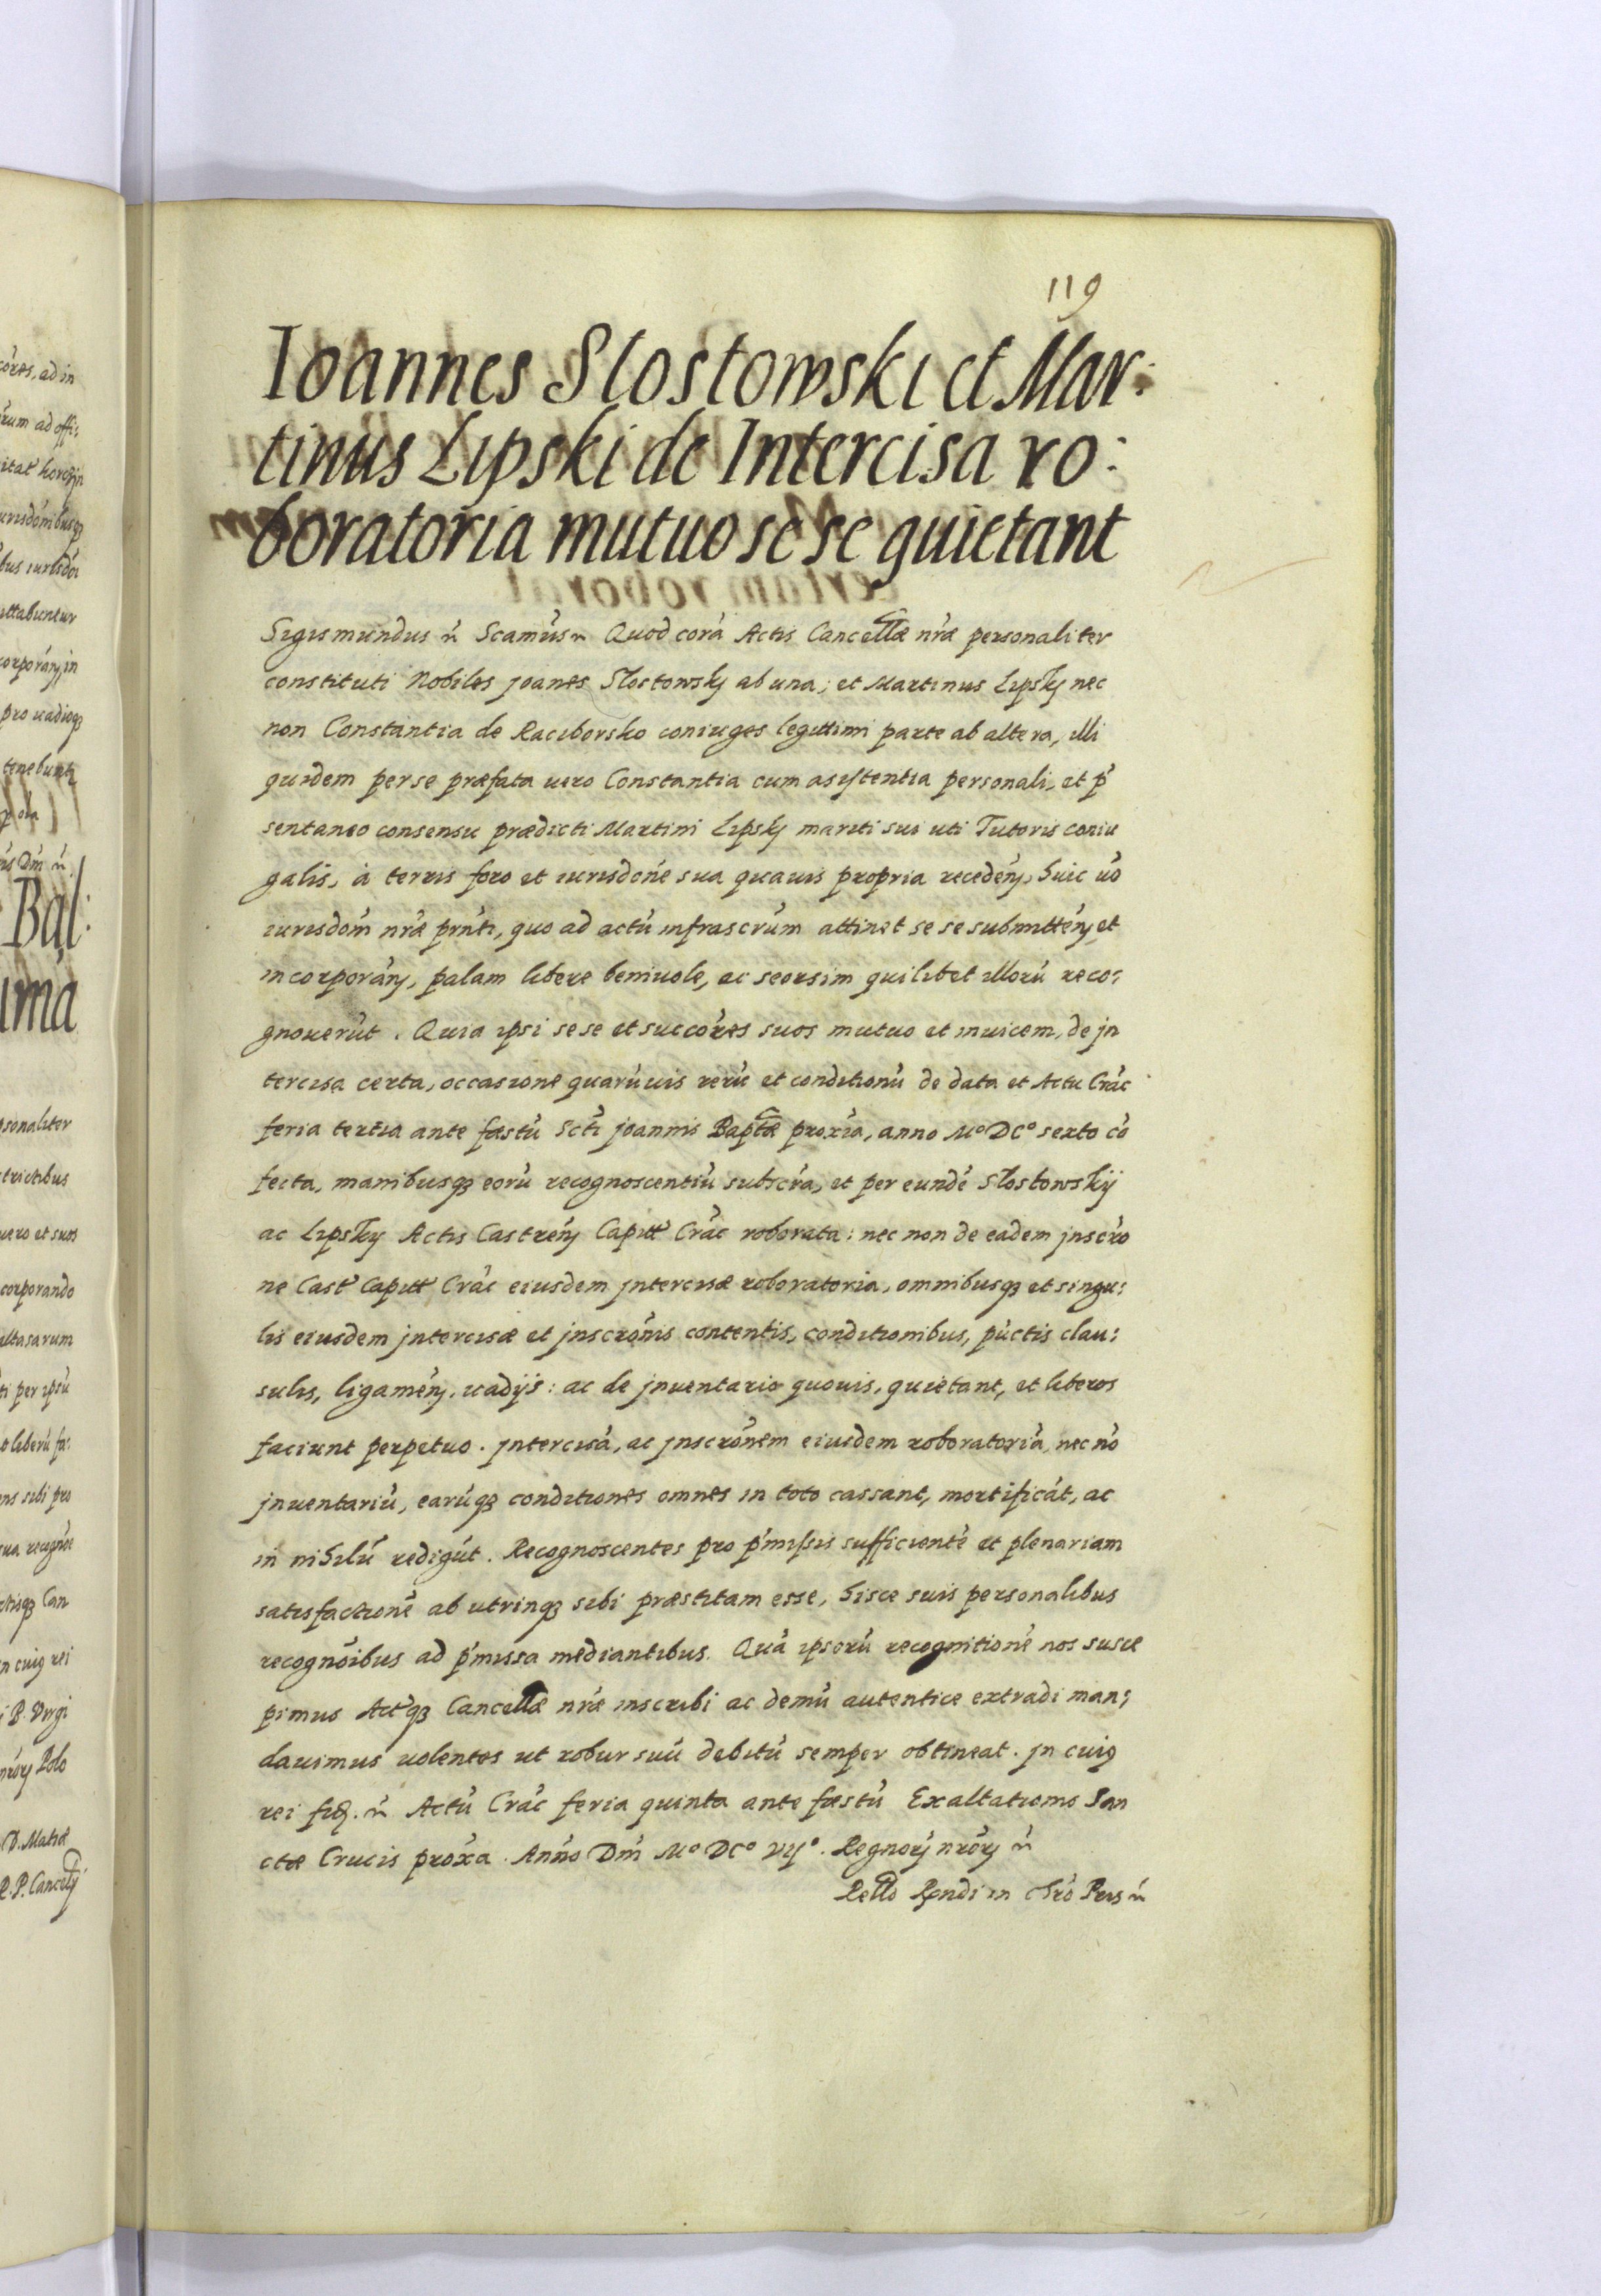 119
Ioannes Slostowski et Mar:
tinus Lipski de Intercisa ro:
boratoria mutuo se se quietant
Sigismundus ṅ Scam̃usṅ Quod corã Actis Cancellæ nr̃æ personaliter
constituti Nobiles Joanes Slostowsky ab una; et Martinus Lipsky nec
non Constantia de Raciborsko coniuges legittimi parte ab altera, illi
quidem per se præfata uero Constantia cum asistentia personali, et p̃
sentaneo consensu prædicti Martini Lipsky mariti sui uti Tutoris coniu
galis, à terris foro et iurisdoñe sua quauis propria recedeñ, huic uõ
iurisdom̃ nr̃æ prñti, quo ad actũ infrascr̃um attinet se se submitteñ et
incorporañ, palam libere beniuole, ac seorsim quilibet illorũ reco:
gnouerũt. Quia ipsi se se et succõres suos mutuo et inuicem, de jn
tercisa certa, occasione quarũuis rerũ et conditionũ de data et Actu Crac̃
feria tertia ante fæstũ Scti Joannis Baptæ proxia, anno Mº DCº sexto cõ
fecta, manibusqȝ eorũ recognoscentiũ subscr̃a, et per eundẽ Slostowskÿ
ac Lipsky Actis Castreñ Capitt̃ Crac̃ roborata: nec non de eadem jnscr̃o
ne Cast̃ Capitt̃ Crac̃ eiusdem jntercisæ roboratoria, omnibusqȝ et singu:
lis eiusdem jntercisæ et jnscrõnis contentis, conditionibus, pũctis clau:
sulis, ligameñ, uadijs: ac de jnuentario quouis, quietant, et liberos
faciunt perpetuo. jntercisã, ac jnscrõnem eiusdem roboratoriã, nec nõ
jnuentariũ, earũqȝ conditiones omnes in toto cassant, mortificãt, ac
in nihilũ redigũt. Recognoscentes pro p̃missis sufficientẽ et plenariam
satisfactionẽ ab utrinqȝ sibi præstitam esse, hisce suis personalibus
recognõibus ad p̃missa mediantibus. Quã ipsorũ recognitionẽ nos susce
pimus Act̃qȝ Cancellæ nr̃æ inscribi ac demũ autentice extradi man:
dauimus uolentes ut robur suũ debitũ semper obtineat. jn cuiꝰ
rei fid. ṅ Actũ Crac̃ feria quinta ante fæstũ Exaltationis San
ctæ Crucis prox̃a. Anño Dñi Mº DCº VIJº. Regnorũ nr̃orũ ṅ
Rello Rndi in Chrõ Pris ṅ